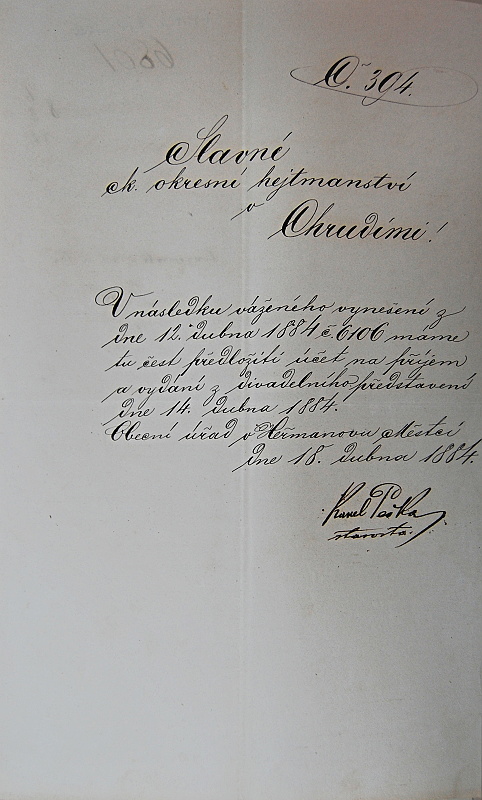 Č. 394.
Slavné
ck. okresní hejtmanství
v
Chrudimi!
V následku váženého vynešení z
dne 12. dubna 1884 č. 6106 máme
tu čest předložiti účet na příjem
a vydání z divadelního představení
dne 14. dubna 1884.
Obecní úřad v Heřmanovu Městci
dne 18. dubna 1884.
Karel
starosta.